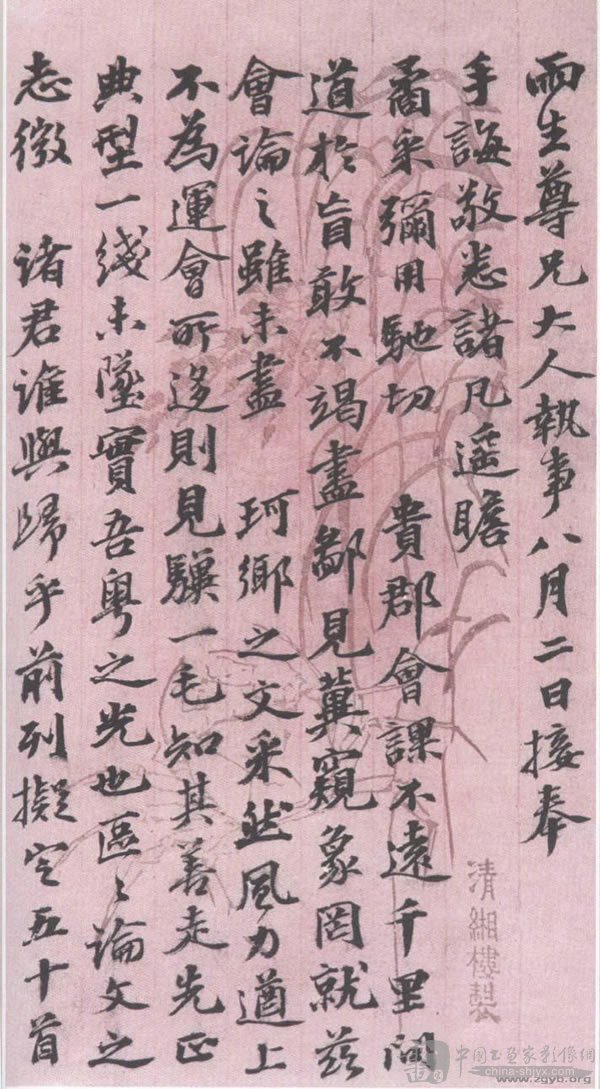 雨生尊兄大人執事八月二日接奉
手誨敬悉諸凡遥瞻
矞采彌用馳切 貴郡會課不遠千里問
道於盲敢不竭盡鄙見冀窺象罔就兹
會論之雖未盡 珂鄉之文采然風力遒上
不為運會所迻則見驥一毛知其善走先正
典型一綫未墜實吾粤之光也區〻論文之
志微 诸君誰與歸乎前列擬定五十首
清緗樓製
中国书画家影像網
china-shjyx.com
www.zgyb.org